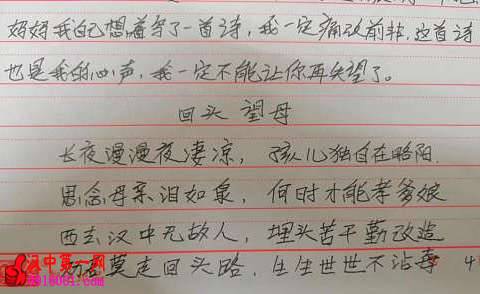 妈妈我自己想着写了一首诗，我一定痛改前非，这首诗
也是我的心声，我一定不能让你再失望了。
回头望母
长夜漫漫夜凄凉，孩儿独自在略阳.
思念母亲泪如泉，何时才能孝爹娘
西去汉中无故人，埋头苦干勤改造
莫走回头路，生生世世不沾毒
汉中第一网